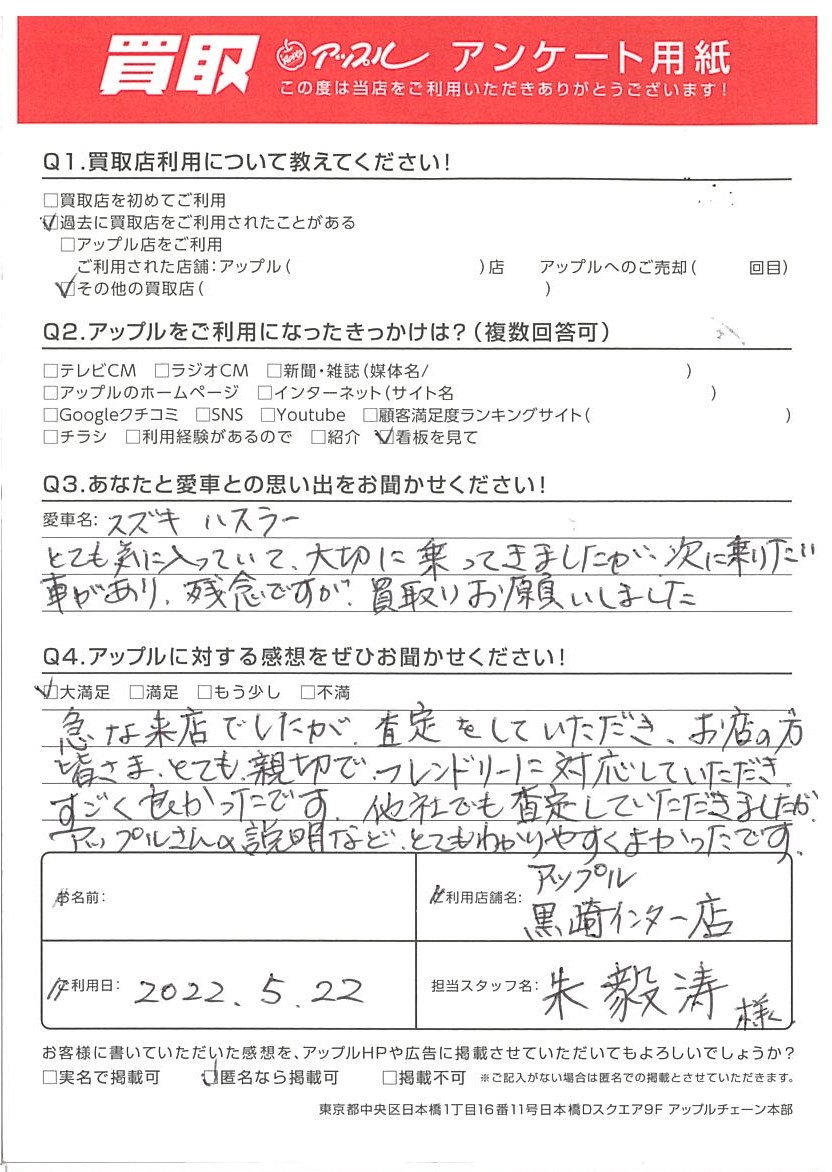 買取 アップル アンケート用紙
この度は当店をご利用いただきありがとうございます!
Q1.買取店利用について教えてください!
□買取店を初めてご利用
☑過去に買取店をご利用されたことがある
□アップル店をご利用
ご利用された店舗:アップル( )店 アップルへのご売却( 回目)
☑その他の買取店( )
Q2.アップルをご利用になったきっかけは?(複数回答可)
□テレビCM □ラジオCM □新聞・雑誌(媒体名/ )
□アップルのホームページ □インターネット(サイト名 )
□Googleクチコミ □SNS □Youtube □顧客満足度ランキングサイト( )
□チラシ □利用経験があるので □紹介 ☑看板を見て
Q3.あなたと愛車との思い出をお聞かせください!
愛車名: スズキ ハスラー
とても気に入っていて、大切に乗ってきましたが、次に乗りたい
車があり、残念ですが、買取りお願いしました
Q4.アップルに対する感想をぜひお聞かせください!
☑大満足 □満足 □もう少し □不満
急な来店でしたが、査定をしていただき、お店の方
皆さま、とても親切で、フレンドリーに対応していただき
すごく良かったです。他社でも査定していただきましたが
アップルさんの説明など、とてもわかりやすくよかったです。
お名前: ご利用店舗名: アップル
黒崎インター店
ご利用日: 2022.5.22 担当スタッフ名: 朱毅涛 様
お客様に書いていただいた感想を、アップルHPや広告に掲載させていただいてもよろしいでしょうか?
□実名で掲載可 ☑匿名なら掲載可 □掲載不可 ※ご記入がない場合は匿名での掲載とさせていただきます。
東京都中央区日本橋1丁目16番11号日本橋Dスクエア9F アップルチェーン本部